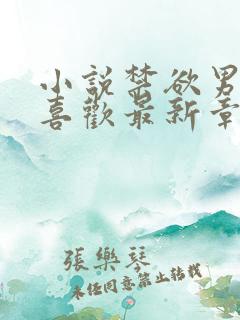 小說禁欲男
喜歡最新章
張樂琴
未经同意禁止转载